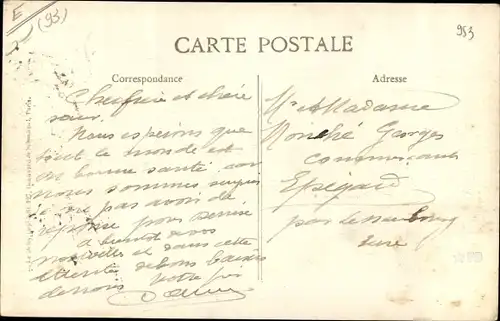 E
(93)
953
CARTE POSTALE
Correspondance
Cher frère et chère
sœur.
Nous espérons que
tout le monde est
en bonne santé car
nous sommes surpris
de ne pas avoir de
réponse pour Denise
à bientôt de vos
nouvelles et dans cette
attente de bons baisers
de nous votre
Adresse
Mr et Madame
Monché Georges
commerçant
Epégard
par le Neubourg
Eure